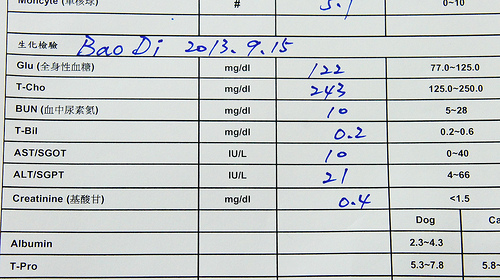 Moncyte (單核球) # 5.1 0~10
生化檢驗 Bao Di 2013.9.15
Glu (全身性血糖) mg/dl 122 77.0~125.0
T-Cho mg/dl 243 125.0~250.0
BUN (血中尿素氮) mg/dl 10 5~28
T-Bil mg/dl 0.2 0.2~0.6
AST/SGOT IU/L 10 0~40
ALT/SGPT IU/L 21 4~66
Creatinine (基酸甘) mg/dl 0.4 <1.5
Dog
Albumin 2.3~4.3
T-Pro 5.3~7.8 5.8~